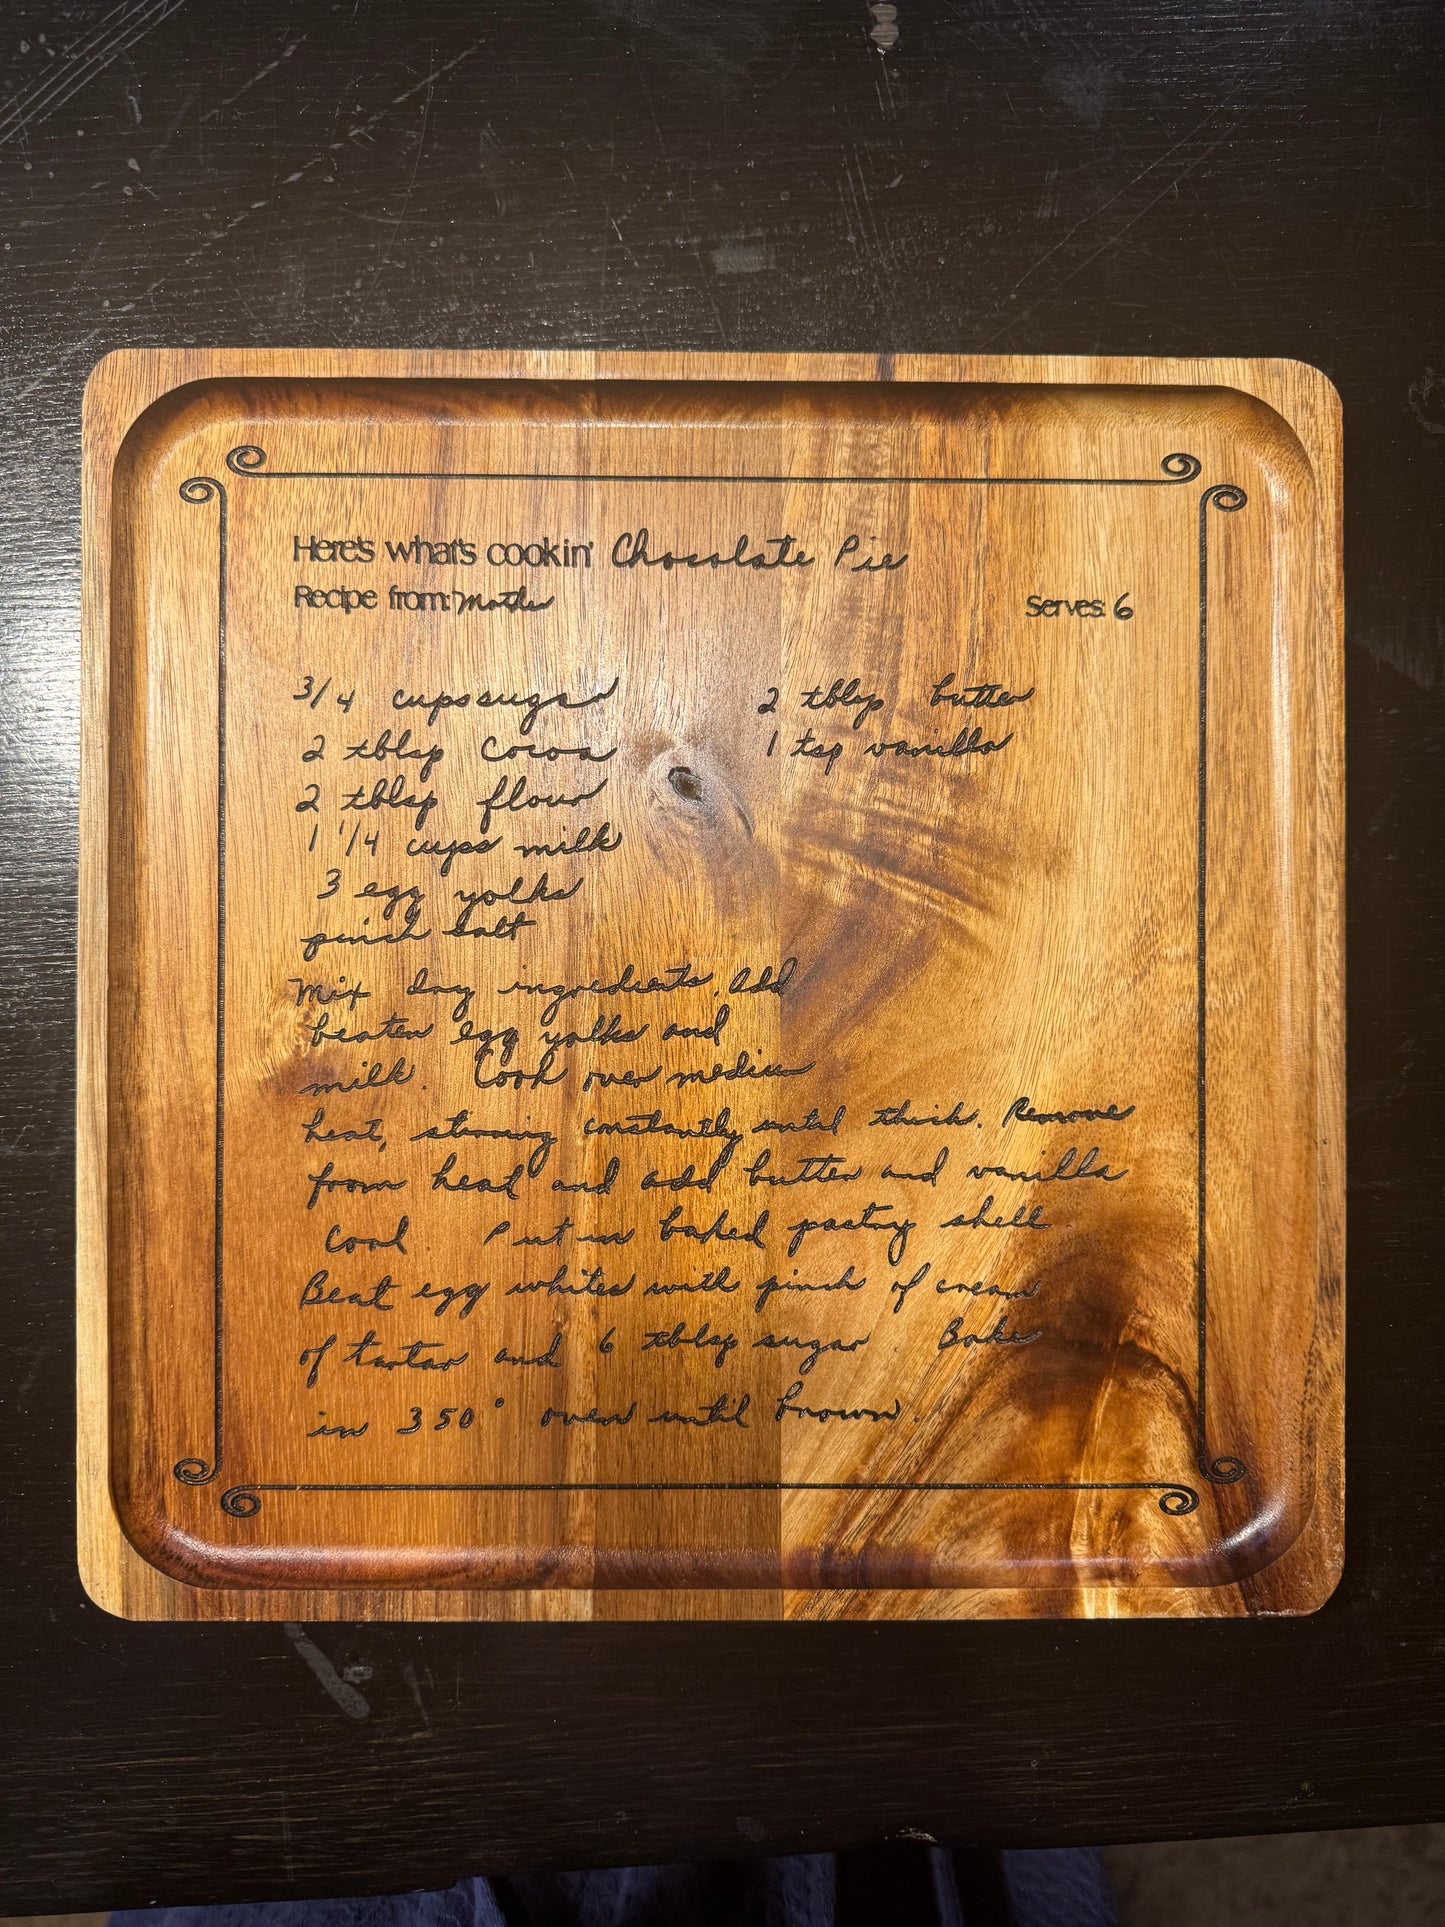 Here's what's cookin' Chocolate Pie
Recipe from: Mother
Serves: 6
3/4 cups sugar
2 tblsp cocoa
2 tblsp flour
1 1/4 cups milk
3 egg yolks
pinch salt
2 tblsp butter
1 tsp vanilla
Mix dry ingredients, add
beaten egg yolks and
milk. Cook over medium
heat, stirring constantly until thick. Remove
from heat and add butter and vanilla
Cool. Put in baked pastry shell
Beat egg whites with pinch of cream
of tartar and 6 tblsp sugar Bake
in 350° oven until brown.